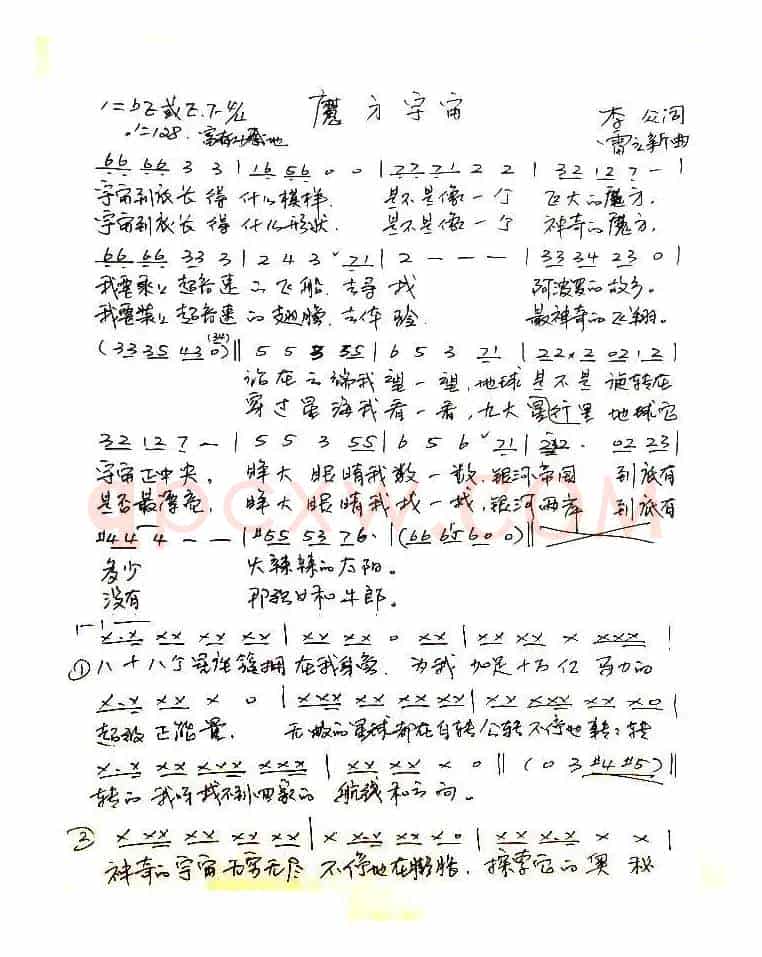 魔方宇宙
1=bE或E.F 4/4
李众词
♩=128.
雷立新曲
66 66 3 3 | 16 56 0 0 | 77 71 2 2 | 32 12 7 - |
宇宙到底长得什么模样. 是不是像一个飞大的魔方.
宇宙到底长得什么形状. 是不是像一个神奇的魔方.
66 66 33 3 | 2 4 3 ˇ 71 | 2 - - - | 33 34 23 0 |
我要乘上超音速的飞船.去寻找 阿波罗的故乡。
我要装上超音速的翅膀.去体验 最神奇的飞翔。
(33 35 43 0) || 5 5 3 35 | 6 5 3 71 | 22×2 02 12 |
站在云端我望一望,地球是不是旋转在
穿过星海我看一看,九大星行里地球它
32 12 7 - | 5 5 3 55 | 6 5 6 ˇ 71 | 22. 02 23 |
宇宙正中央。睁大眼睛我数一数,银河帝国 到底有
是否最漂亮,睁大眼睛我找一找,银河两岸 到底有
#44 4 - - | #55 53 76. | (66 65 60 0) ||
多少 火辣辣的太阳。
没有 那织女和牛郎。
x.x xx xx xx | xx xx 0 xx | xx xx x xxx |
①八十八个星座簇拥在我身旁.为我加足十万亿马力的
x.x xx x 0 | xxx xx xx xx | xx xxx xx x0 |
超级正能量. 无数的星球都在自转公转不停地转转
x.x xx xxx xxx | xx xx x 0 || (0 3 #4 #5) ||
转的我呀找不到回家的航线和方向。
② x xx xx xx xx | x x.x xx x0 | xx x.x x x |
神奇的宇宙无穷无尽 不停地在膨胀.探索它的奥秘
qpcxw.com